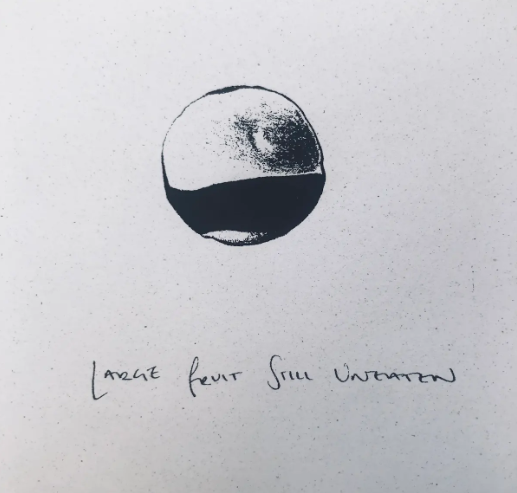 LARGE fRUIT STILL UNEATEN